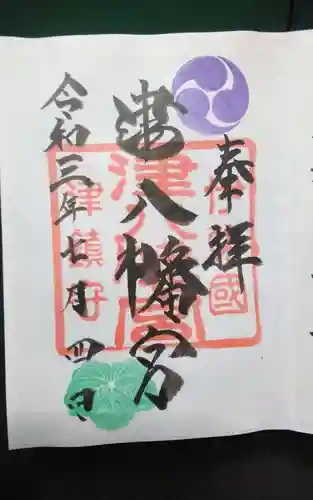 奉拝
津八幡宮
令和三年七月四日
伊勢國
津八幡宮
津鎮守